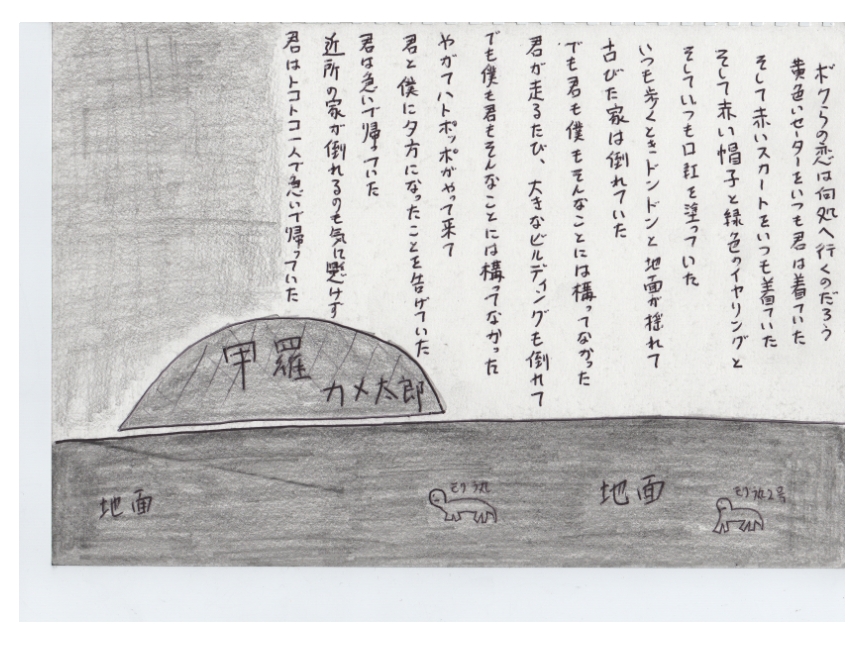 ボクらの恋は何処へ行くのだろう
黄色いセーターをいつも君は着ていた
そして赤いスカートをいつも着ていた
そして赤い帽子と緑色のイヤリングと
そしていつも口紅を塗っていた
いつも歩くときドンドンと地面が揺れて
古びた家は倒れていた
でも君も僕もそんなことには構ってなかった
君が走るたび、大きなビルディングも倒れて
でも僕も君もそんなことには構ってなかった
やがてハトポッポがやって来て
君と僕に夕方になったことを告げていた
君は急いで帰っていた
近所の家が倒れるのも気に懸けず
君はトコトコ一人で急いで帰っていた
甲羅
カメ太郎
地面
地面
モグ
2号